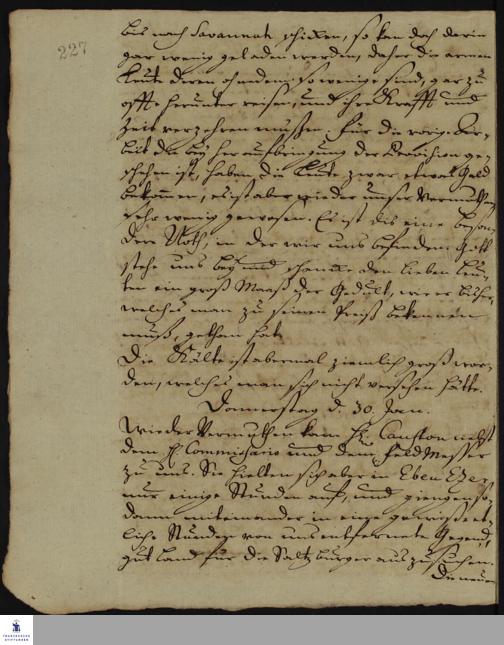 227
bis nach Savannah schicken, so kan doch darin
gar wenig geladen werden, daher die armen
Leute deren ohnedem so wenige sind, gar zu
offte herunter reisen, und ihre Krafft und
Zeit verzehren müssen. Für die vorige Ar-
beit die bey heraufbringung der Provision ge-
schehen ist, haben die Leute zwar etwas Geld
bekommen, es ist aber wieder unser Vermuthen
sehr wenig gewesen. Es ist dis eine beson-
dere Noth, in der wir uns befinden: Gott
stehe uns bey und schencke den lieben Leu-
ten ein groß Maaß der Gedult, wie er bisher,
welches man zu seinem Preiß bekennen
muß, gethan hat.
Die Kälte ist abermal ziemlich groß wor-
den, welches man sich nicht versehen hätte.
Donnerstag d. 30. Jan.
Wieder Vermuthen kam H. Causton nebst
dem H. Commissario und dem Feld Messer
zu uns. Sie hielten sich aber in Eben Ezer
nur einige Stunden auf, und giengen so-
dann miteinander in eine gewisse et-
liche Stunden von uns entfernete Gegend,
gut Land für die Saltzburger auszusuchen.
Die neuen
FRANCKESCHE
STIFTUNGEN